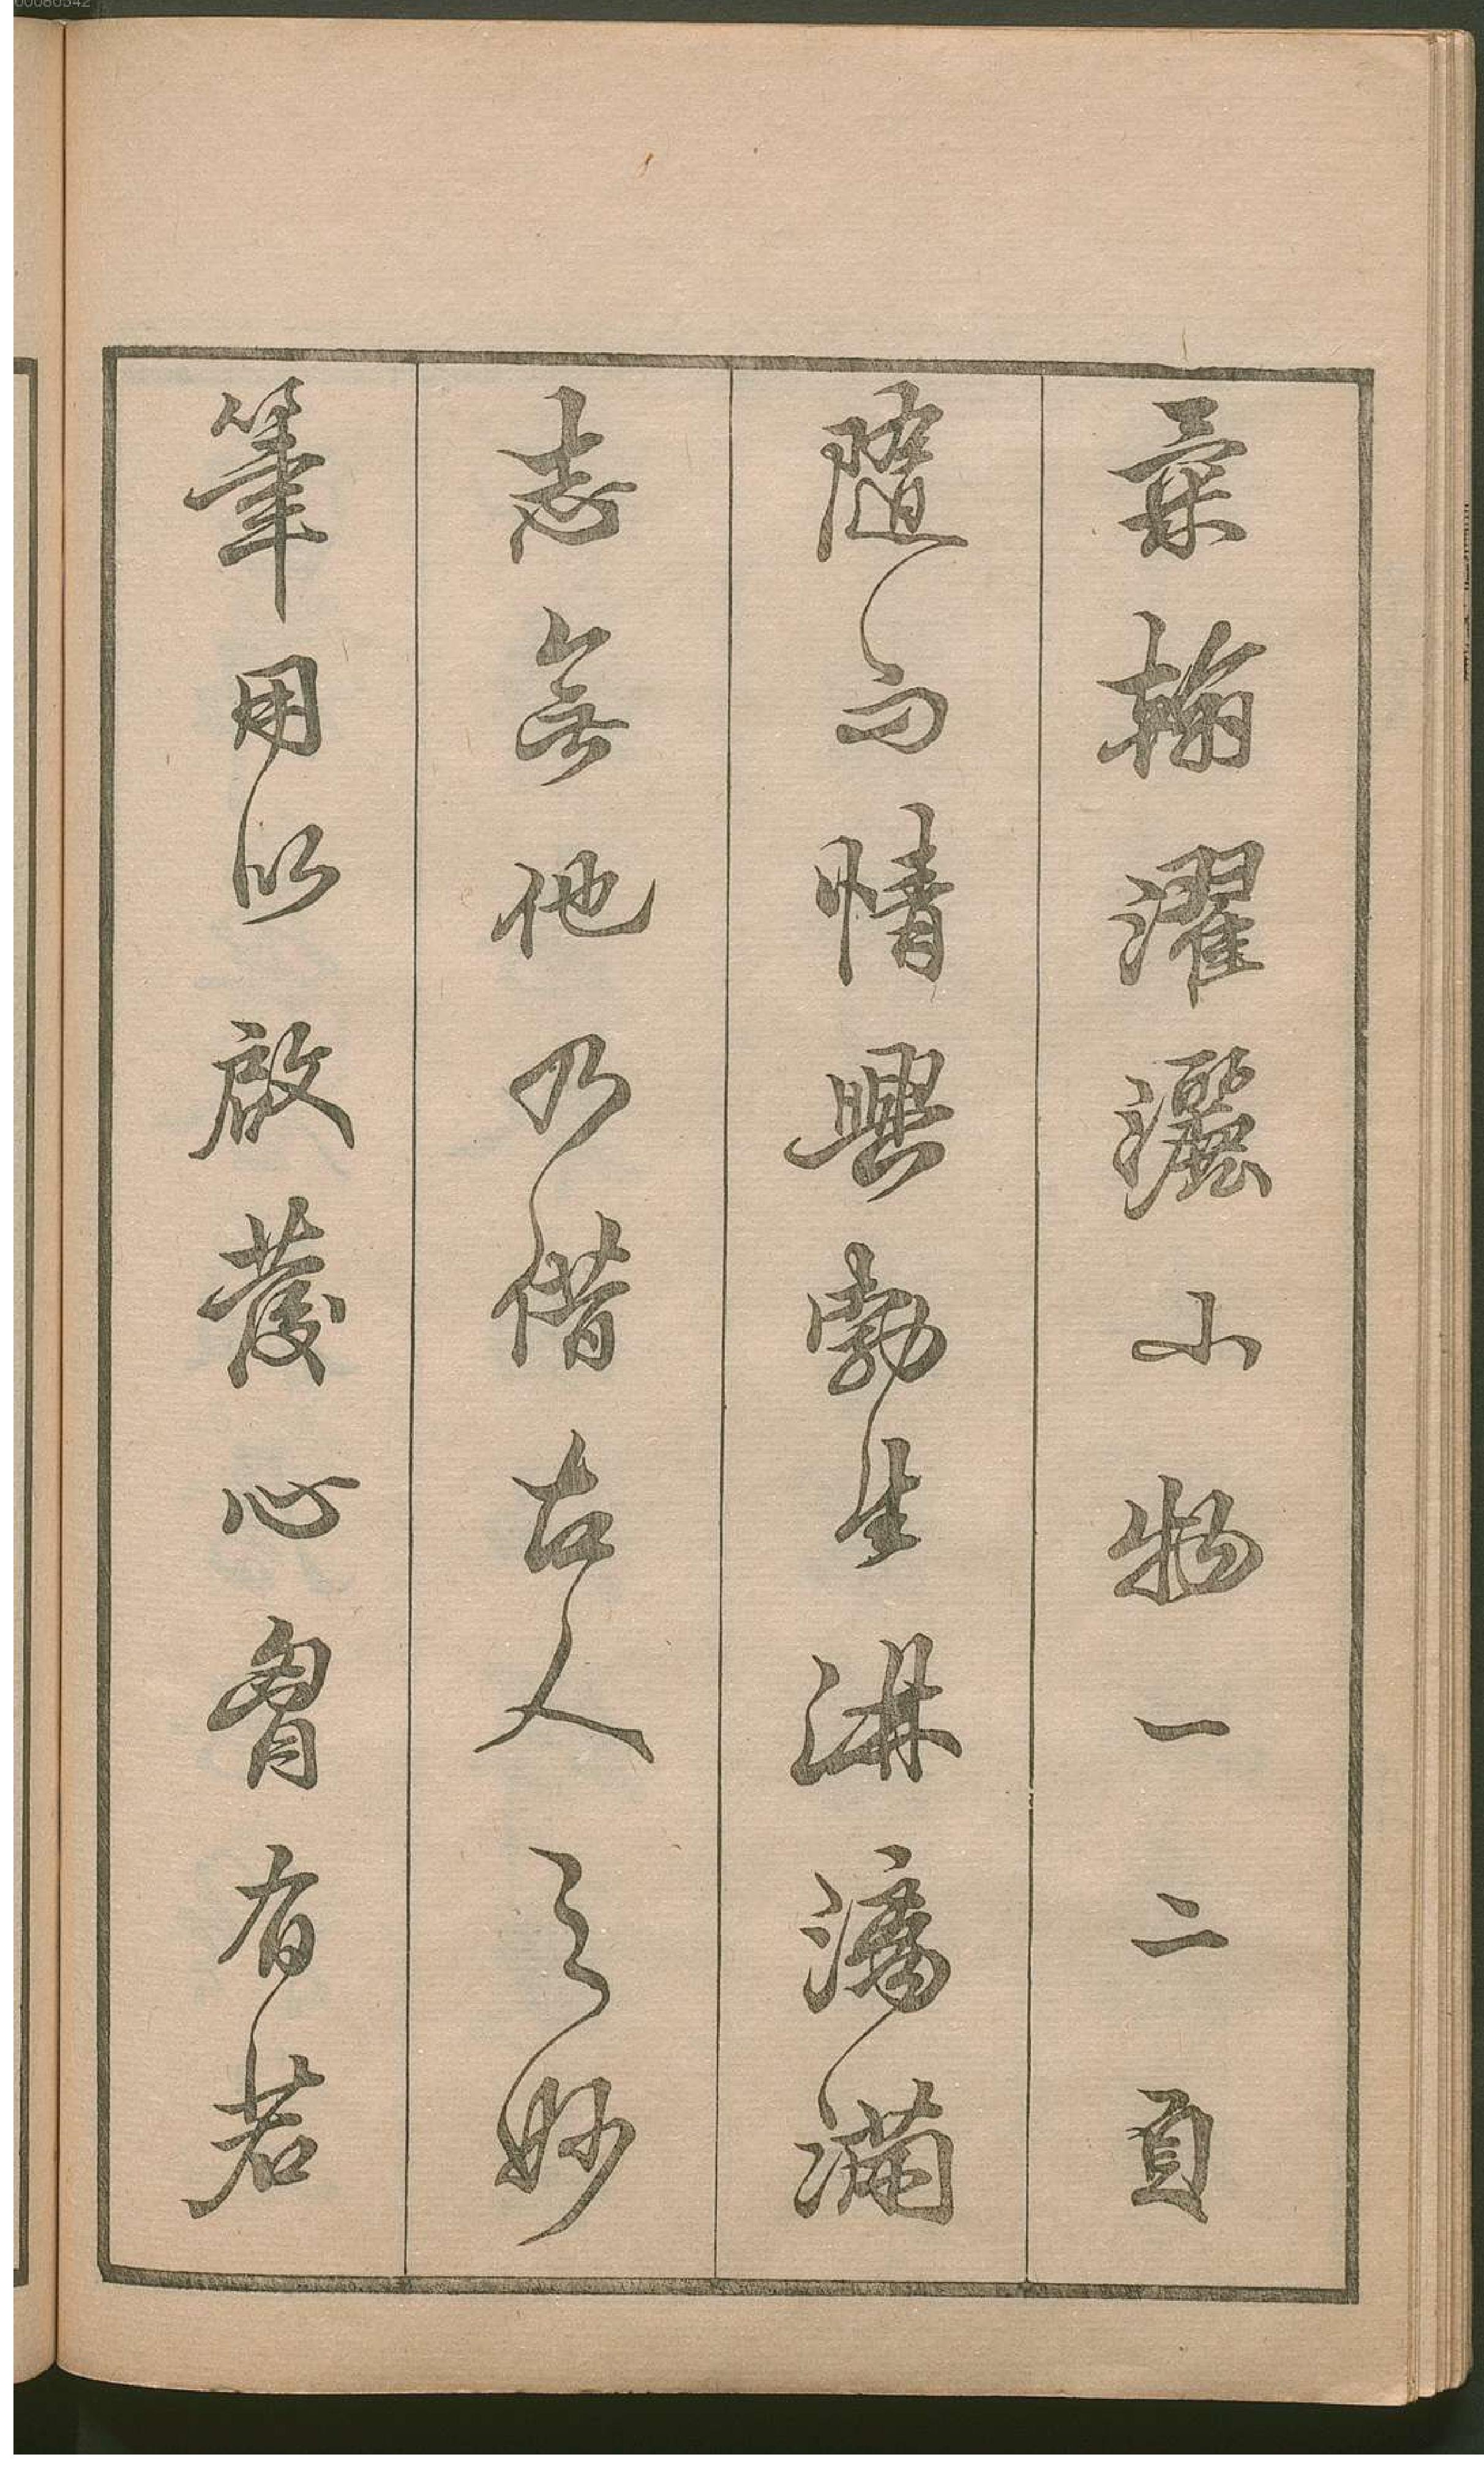 翰濯灑小物一二頁
隨而情興勃生淋漓滿
志無他乃借古人之妙
筆用以啟發心胷有若